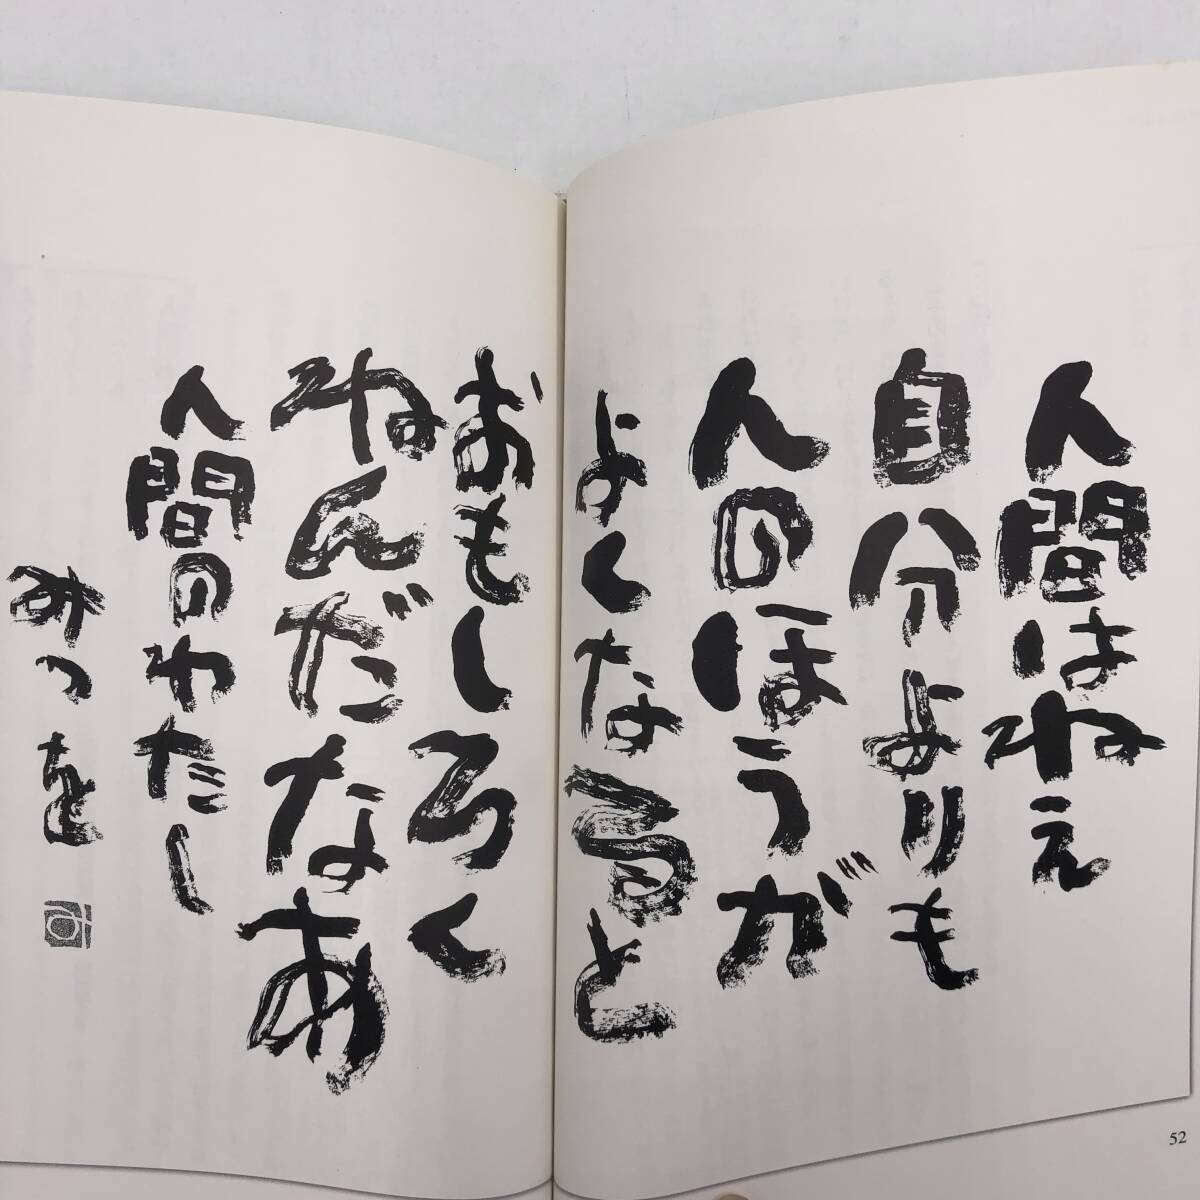 人間はねえ
自分よりも
人のほうが
よくなると
おもしろく
ねんだなあ
人間のわたし
みつを
み
52